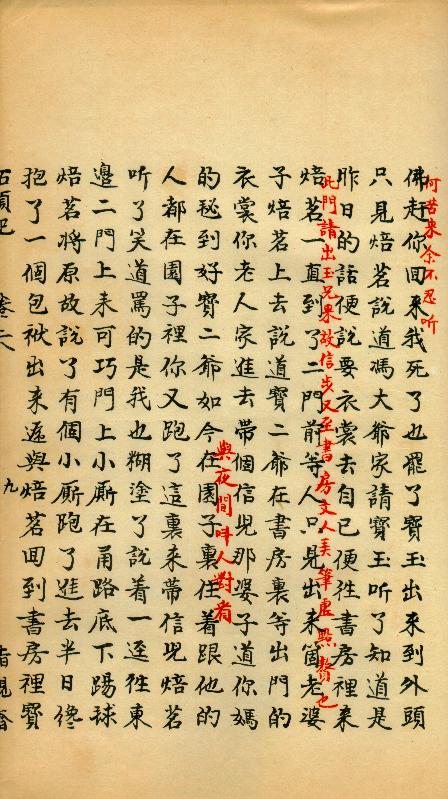 何苦来余不忍听
佛赶你回来我死了也罷了寶玉出来到外頭
只見焙茗說道馮大爺家請寶玉听了知道是
昨日的話便說要衣裳去自己便徃書房裡来
此門請出玉兄來故信步又至書房文人美筆虛點贅也
焙茗一直到了二門前等人只見出来箇老婆
子焙茗上去說道寶二爺在書房裏等出門的
衣裳你老人家進去帶個信兒那婆子道你媽
的秘到好寶二爺如今在園子裏住着跟他的
與夜間呌人對看
人都在園子裡你又跑了這裏来帶信兒焙茗
听了笑道罵的是我也糊塗了說着一逕徃東
邉二門上来可巧門上小厮在甬路底下踢球
焙茗將原故說了有個小厮跑了進去半日纔
抱了一個包袱出来遞與焙茗回到書房裡寶
石頭記 卷 九 脂硯齋